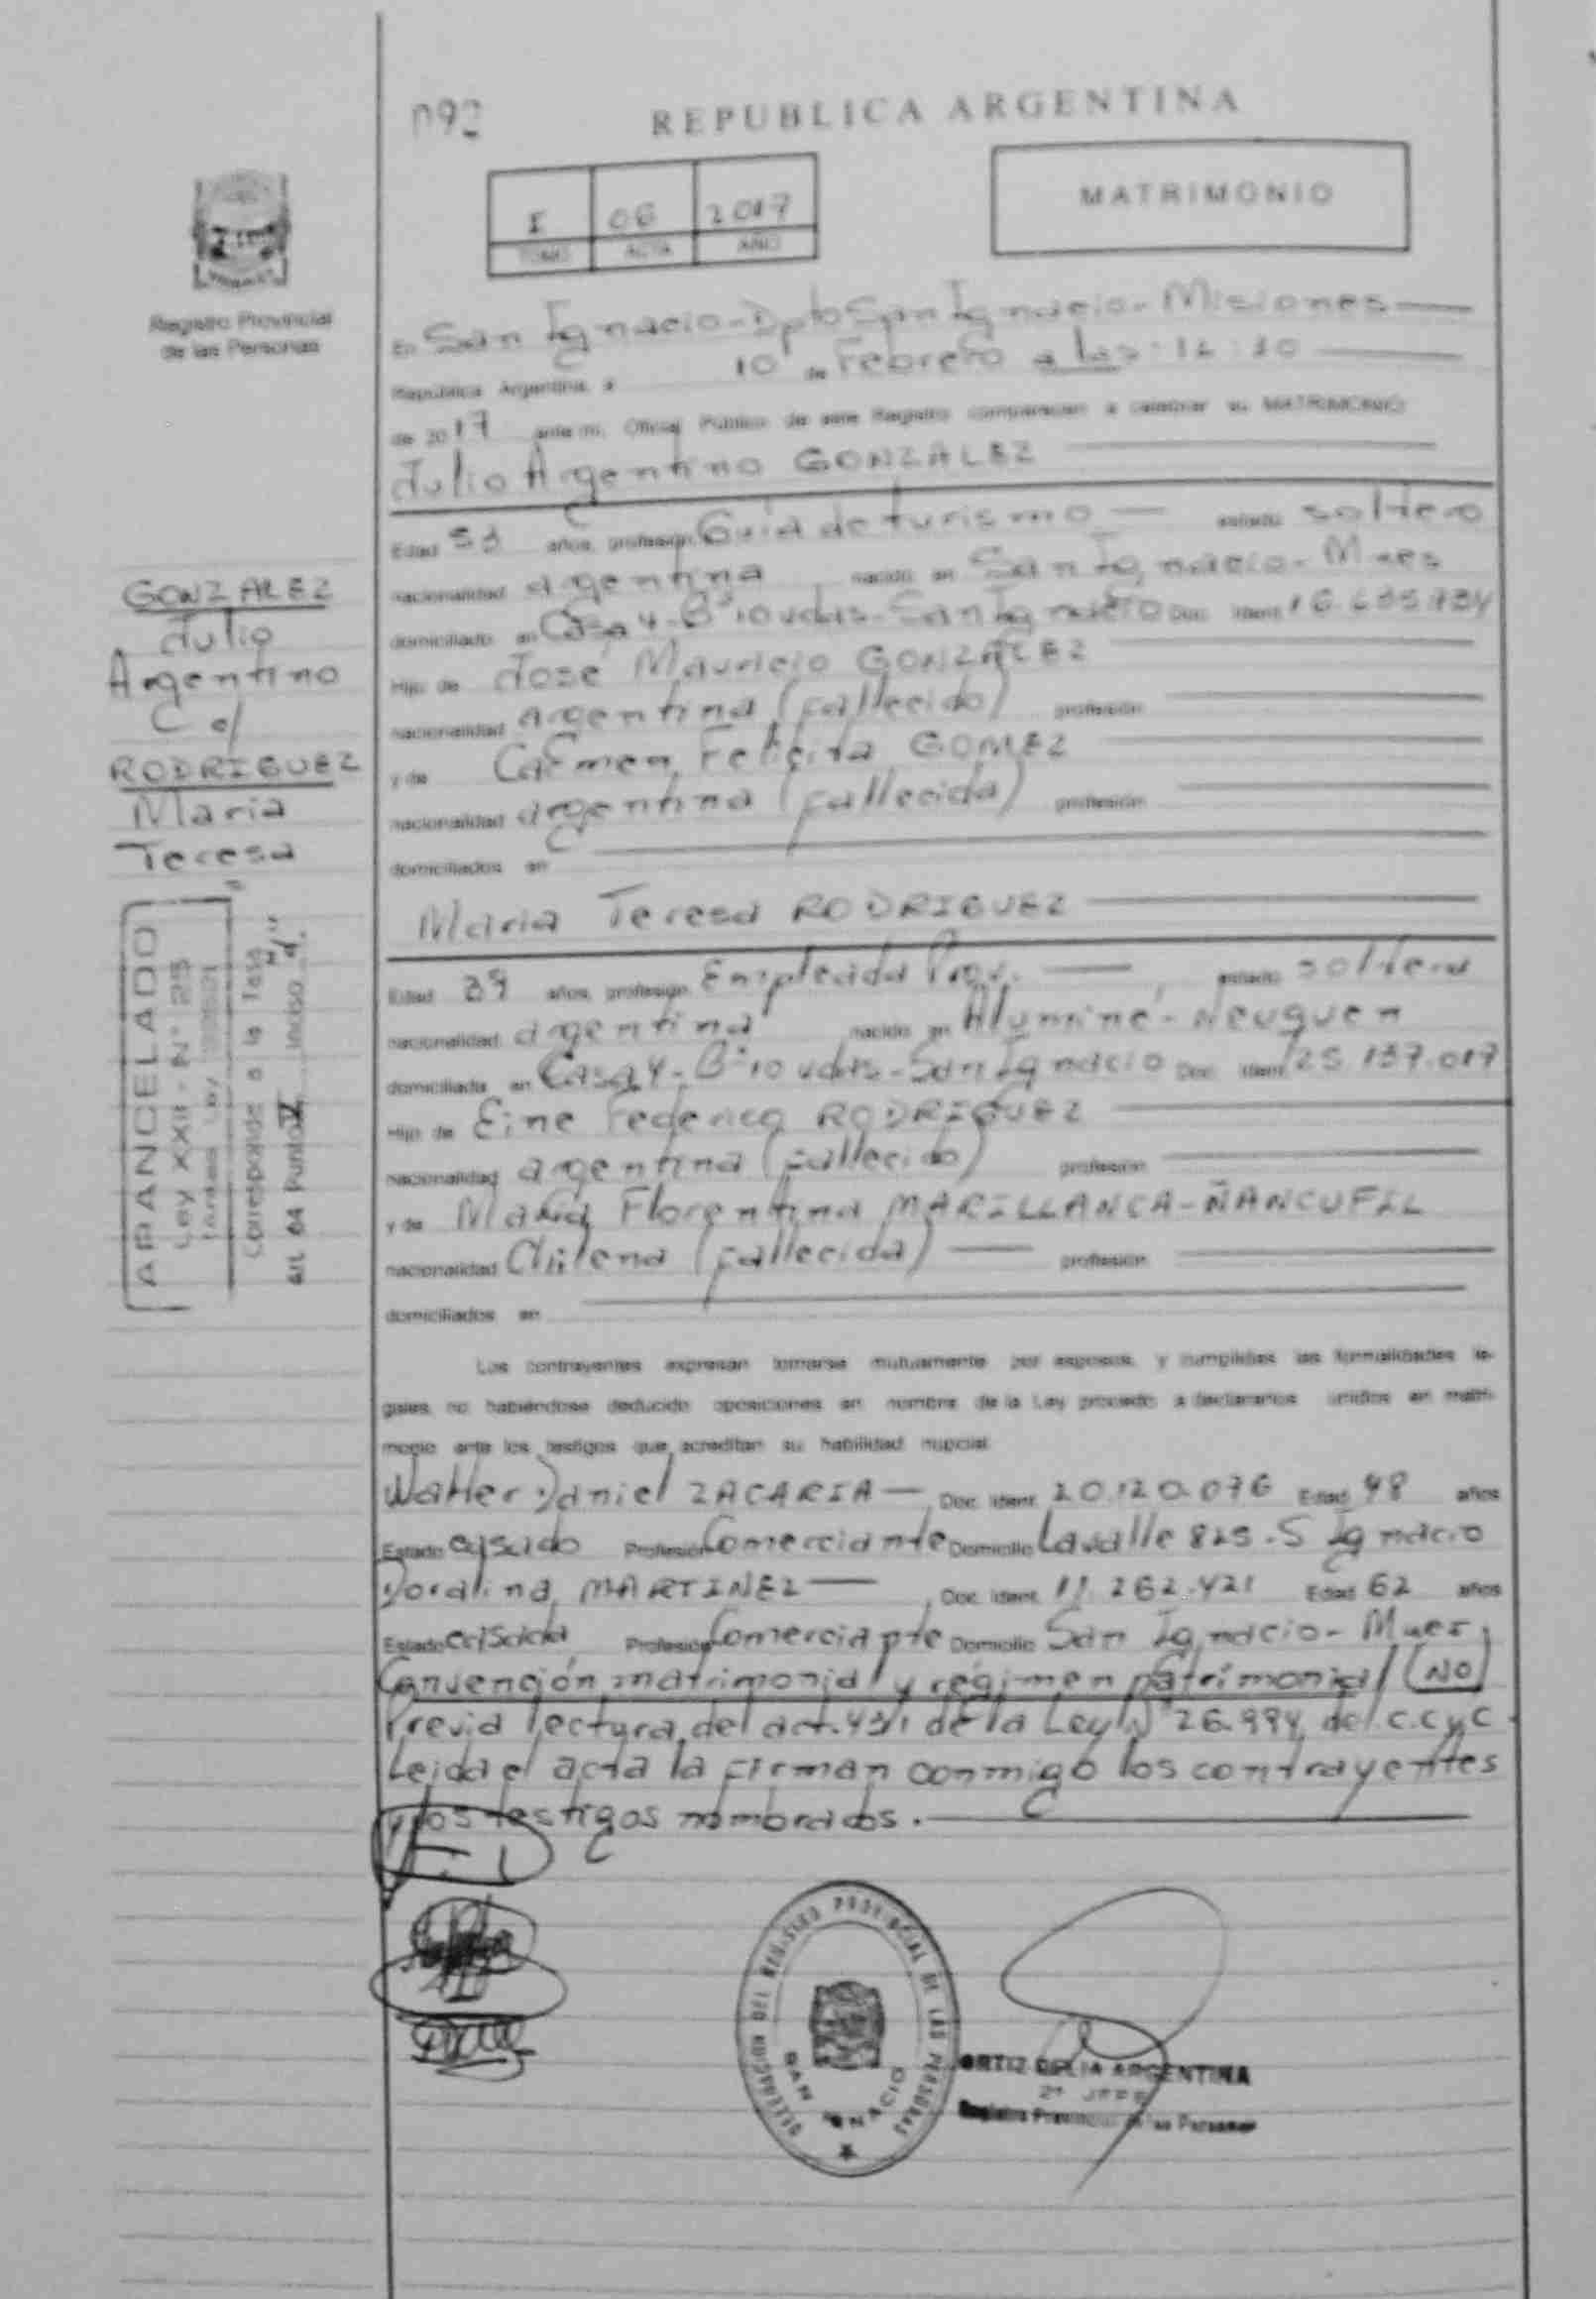 092
REPUBLICA ARGENTINA
I 06 2017
TOMO ACTA AÑO
MATRIMONIO
Registro Provincial
de las Personas
En San Ignacio - Dpto San Ignacio - Misiones
República Argentina, a 10 de Febrero a las
de 2017 ante mí, Oficial Público de este Registro comparecen a celebrar su MATRIMONIO
Julio Argentino GONZALEZ
Edad 53 años, profesión Guia de turismo estado soltero
nacionalidad argentina nacido en San Ignacio - Mnes
domiciliado en Casa 4 - Bº 10 vdas - San Ignacio Doc. Ident.
Hijo de José Mauricio GONZALEZ
nacionalidad argentina (fallecido) profesión
y de Carmen Felicita GOMEZ
nacionalidad argentina (fallecida) profesión
domiciliados en
Maria Teresa RODRIGUEZ
Edad 39 años, profesión Empleada Prov. estado soltera
nacionalidad argentina nacido en Aluminé - Neuquen
domiciliada en Casa 4 - Bº 10 vdas - San Ignacio Doc. Ident. 25.137.017
Hijo de Eine Federico RODRIGUEZ
nacionalidad argentina (fallecido) profesión
y de Maria Florentina MARILLANCA - ÑANCUFIL
nacionalidad Chilena (fallecida) profesión
domiciliados en
Los contrayentes expresan tomarse mutuamente por esposos, y cumplidas las formalidades le-
gales, no habiéndose deducido oposiciones en nombre de la Ley procedo a declararlos unidos en matri-
monio ante los testigos que acreditan su habilidad nupcial
Walter Daniel ZACARIA Doc. Ident. 20.120.076 Edad 48 años
Estado casado Profesión Comerciante Domicilio Lavalle 825 - S Ignacio
Doralina MARTINEZ Doc. Ident. 11.262.421 Edad 62 años
Estado casada Profesión Comerciante Domicilio San Ignacio - Mnes.
Convención matrimonial y régimen patrimonial (NO)
Previa lectura del art. 431 de la Ley Nº 26.994 del C.C y C.
Leida el acta la firman conmigo los contrayentes
y los testigos nombrados.
GONZALEZ
Julio
Argentino
C/
RODRIGUEZ
Maria
Teresa
ARANCELADO
Ley XXII - Nº 25
Corresponde a la Tasa
Art. 04 Punto IV Inciso "d."
DELEGACION DEL REGISTRO PROVINCIAL DE LAS PERSONAS
SAN IGNACIO
ORTIZ DELIA ARGENTINA
2º JEFE
Registro Provincial de las Personas